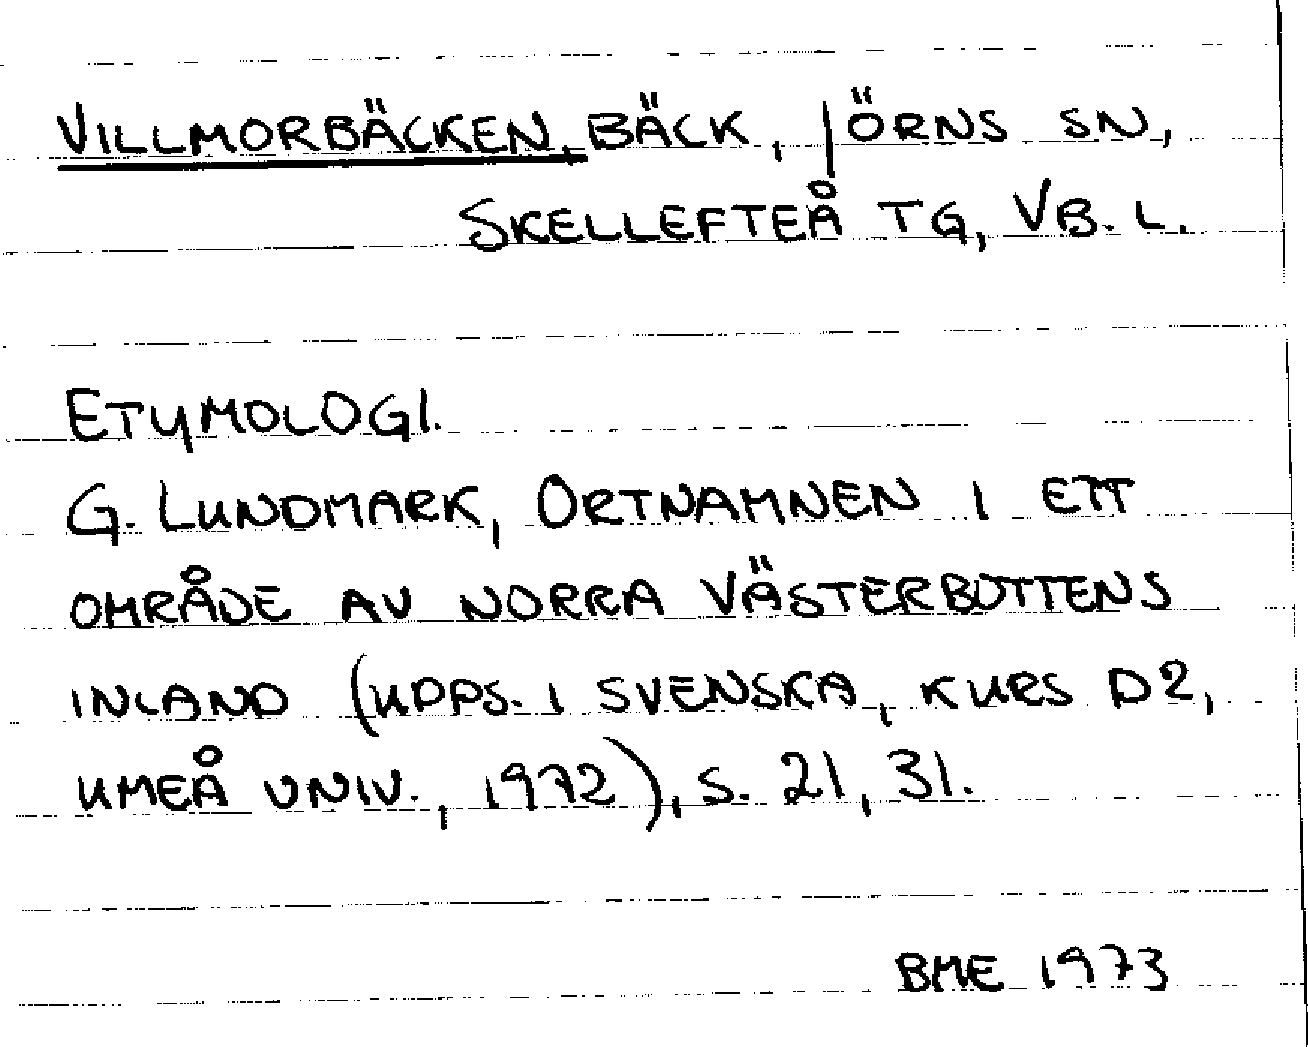 VILLMORBÄCKEN, BÄCK, JÖRNS SN,
SKELLEFTEÅ TG, VB. L.
ETYMOLOGI.
G. LUNDMARK, ORTNAMNEN I ETT
OMRÅDE AV NORRA VÄSTERBOTTENS
INLAND (UPPS. I SVENSKA, KURS D2,
UMEÅ UNIV., 1972), S. 21, 31.
BME 1973